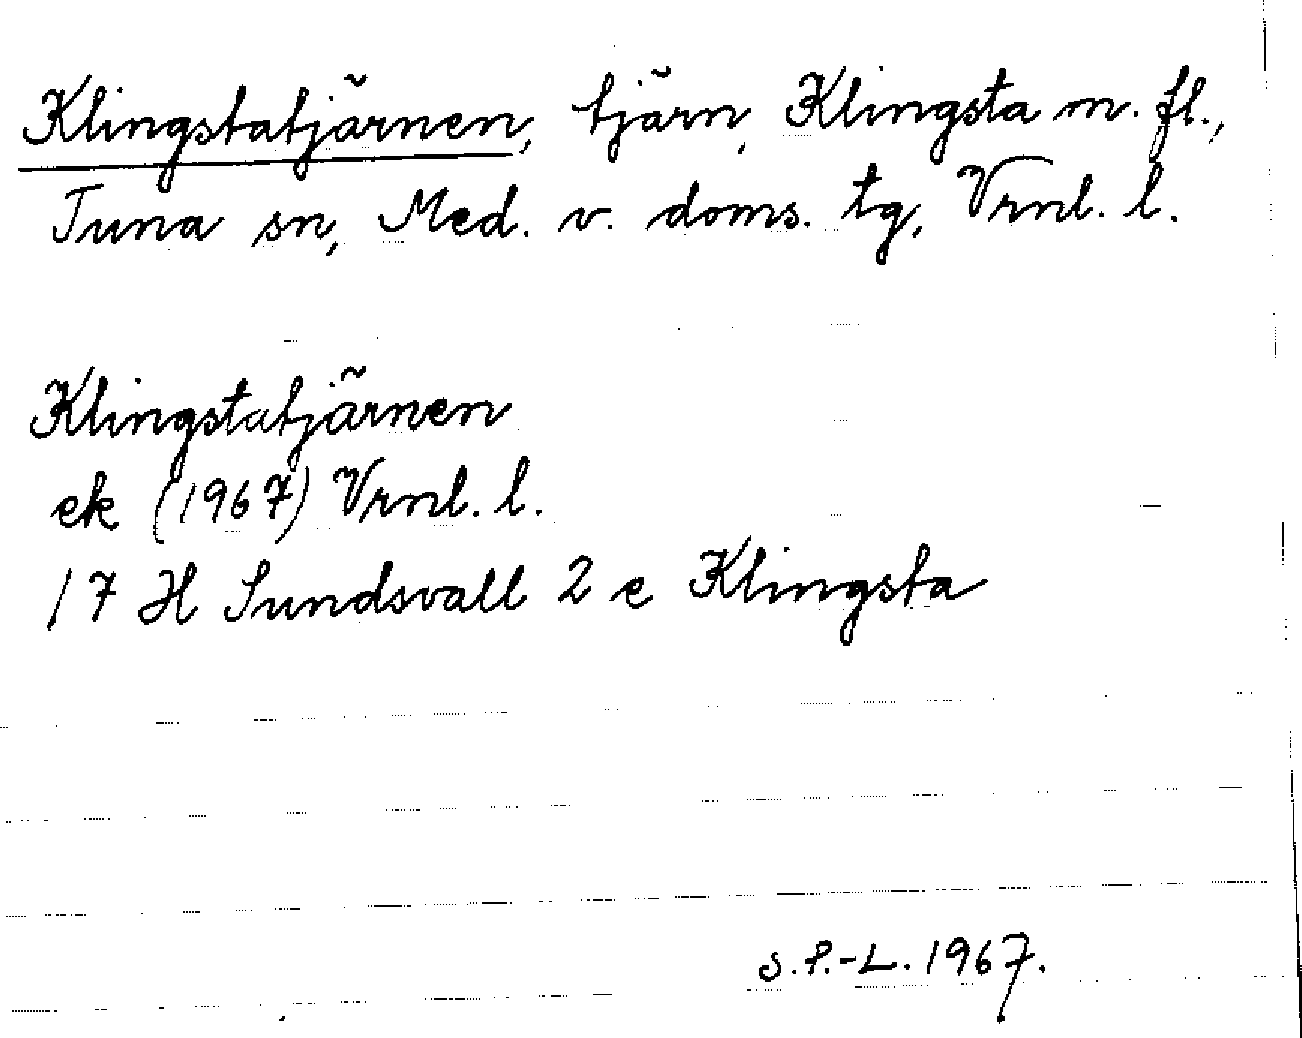 Klingstatjärnen, tjärn, Klingsta m. fl.,
Tuna sn, Med. v. doms. tg, Vrnl. l.
Klingstatjärnen
ek (1967) Vrnl. l.
17 H Sundsvall 2 e Klingsta
S.P.-L. 1967.